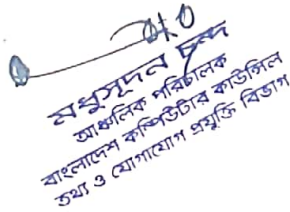 মধুসূদন চন্দ
আঞ্চলিক পরিচালক
বাংলাদেশ কম্পিউটার কাউন্সিল
তথ্য ও যোগাযোগ প্রযুক্তি বিভাগ